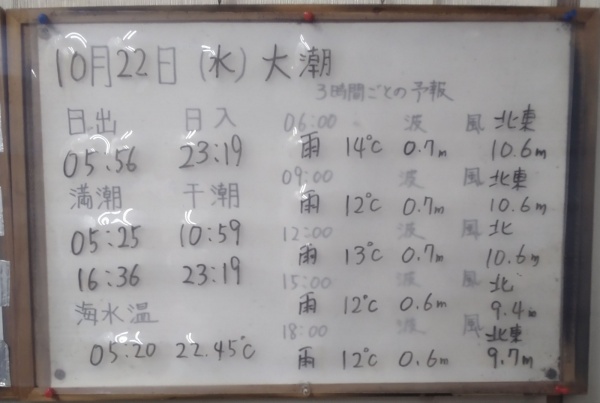 10月22日(水)大潮
3時間ごとの予報
日出 日入
05:56 23:19
満潮 干潮
05:25 10:59
16:36 23:19
海水温
05:20 22.45℃
06:00 波 風 北東
雨 14℃ 0.7m 10.6m
09:00 波 風 北東
雨 12℃ 0.7m 10.6m
12:00 波 風 北
雨 13℃ 0.7m 10.6m
15:00 波 風 北
雨 12℃ 0.6m 9.4m
18:00 波 風 北東
雨 12℃ 0.6m 9.7m